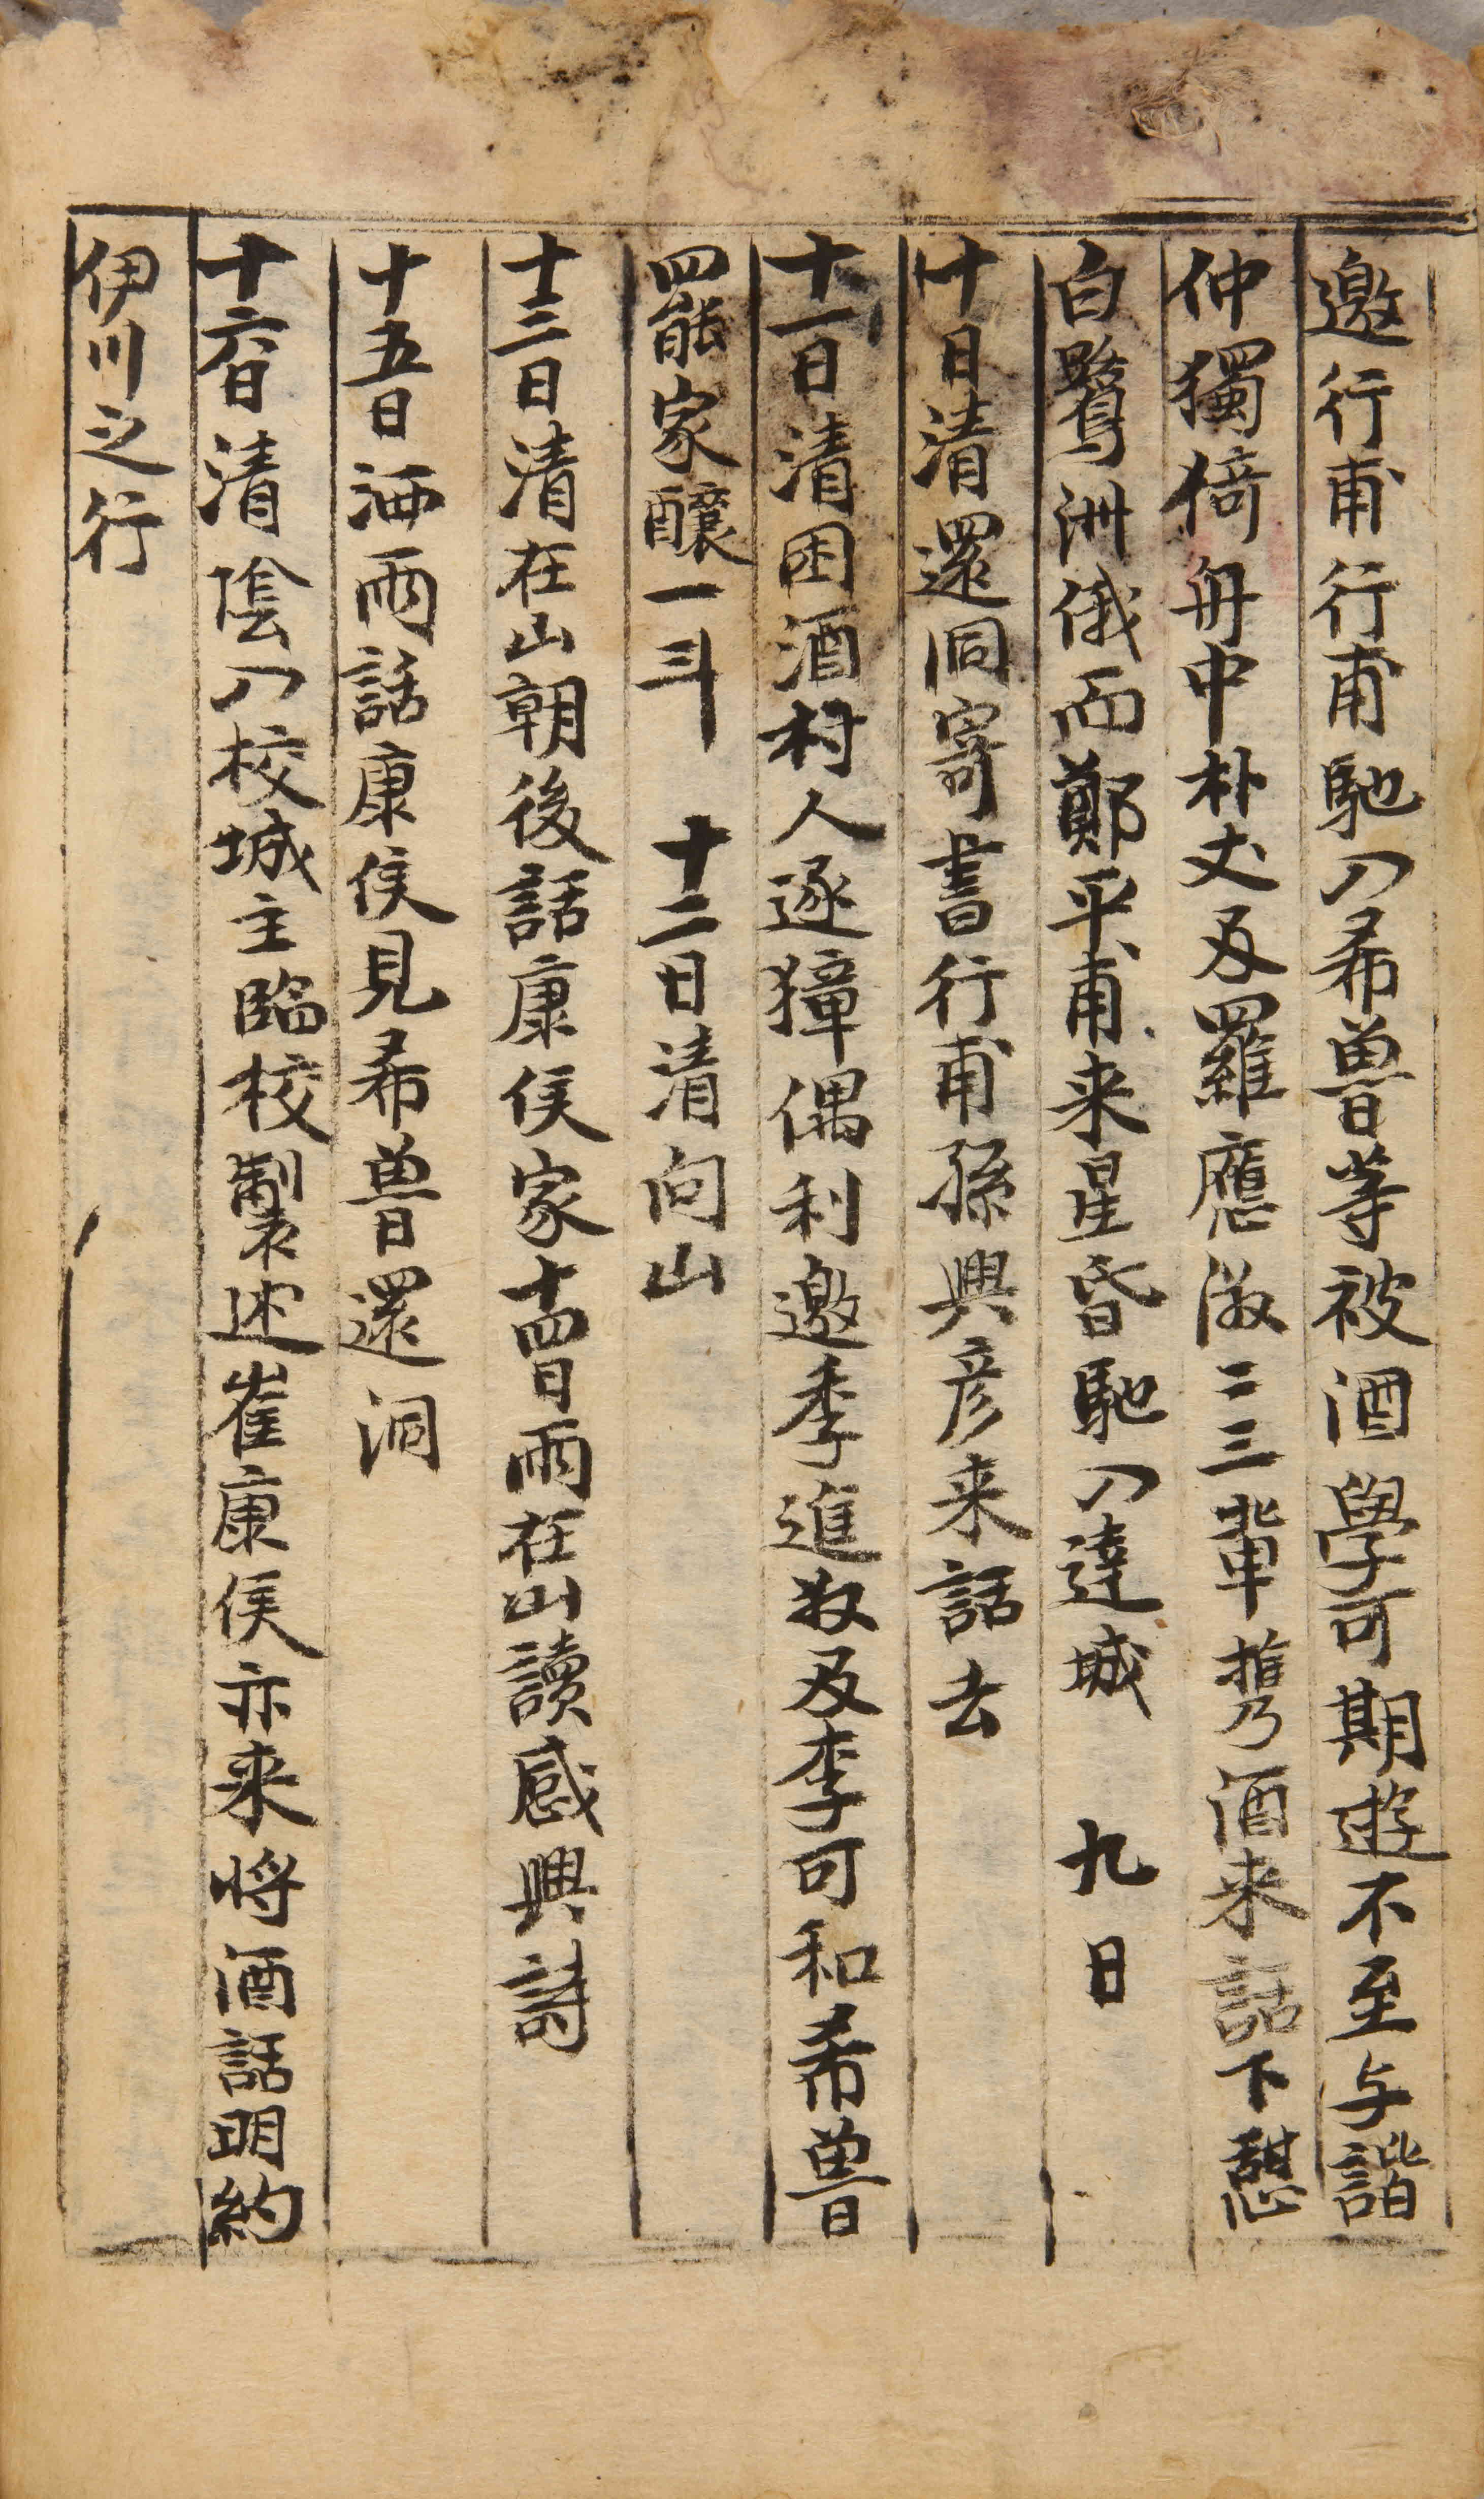 邀行甫行甫馳入希魯等被酒學可期遊不至与諧
仲獨倚舟中朴丈及羅應淑二三輩携酒来話下憇
白鷺洲俄而鄭平甫来星昏馳入達城　九日
十日清還洞寄書行甫孫興彦来話去
十一日清困酒村人逐獐偶利邀季進叔及李可和希魯
罷家釀一斗　十二日清向山
十三日清在山朝後話康侯家十四日雨在山讀感興詩
十五日洒雨話康侯見希魯還洞
十六日清陰入校城主臨校製述崔康侯亦来将酒話明約
伊川之行